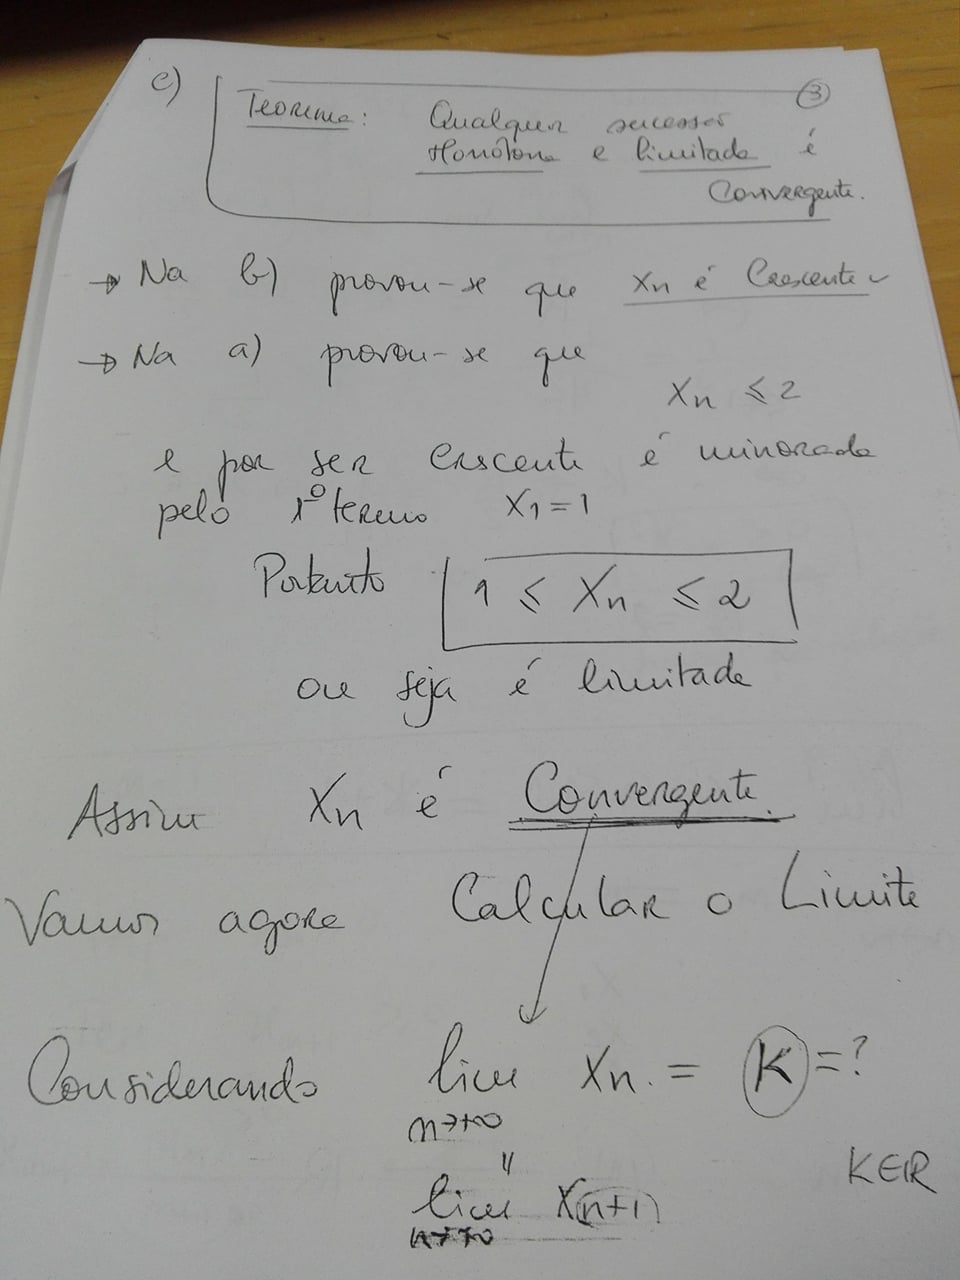 c) 3
Teorema: Qualquer sucessão
Monótona e limitada é
Convergente.
→ Na b) provou-se que xn é Crescente
→ Na a) provou-se que
xn ⩽ 2
e por ser crescente é minorada
pelo 1º termo x1 = 1
Portanto 1 ⩽ xn ⩽ 2
ou seja é limitada
Assim xn é Convergente.
Vamos agora Calcular o Limite
Considerando lim xn = K = ?
n→+∞
"
K∈IR
lim x(n+1)
n→+∞